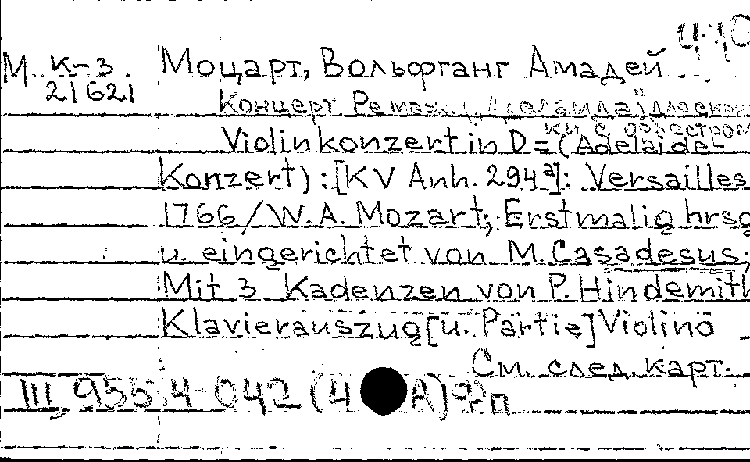 М К-3 Моцарт, Вольфганг Амадей
2/621
Концерт Ре маж. ("Аделаида") для скрип
ки с оркестром
Violinkonzert in D = (Adelaide-
Konzert) : [KV Anh. 294ª]: Versailles
1766/W. A. Mozart; Erstmalig hrsg
u. eingerichtet von M. Casadesus;
Mit 3 Kadenzen von P. Hindemith
Klavierauszug [u. Partie] Violino
См. след. карт.
III, 955 4-042 (4 А)